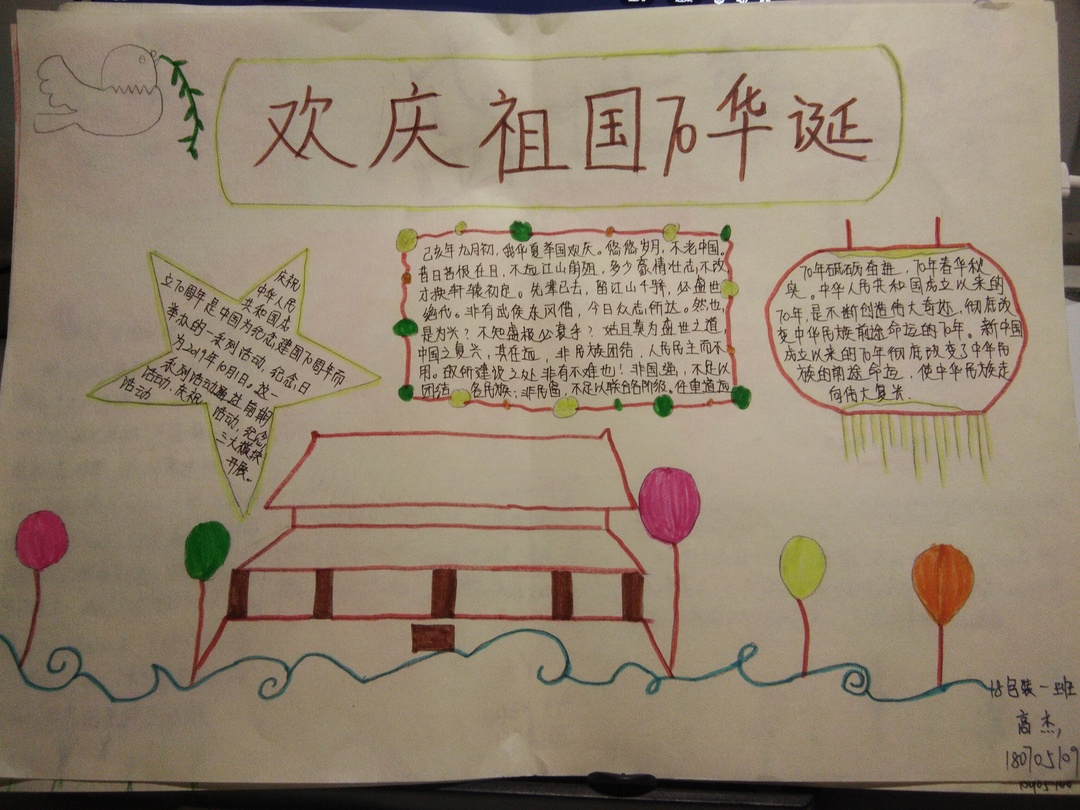 欢庆祖国70华诞
庆祝
中华人民
共和国成
立70周年是中国为纪念建国70周年而
举办的一系列活动，纪念日
为2019年10月1日。这一
系列活动通过前期
活动，庆祝活动，纪念
活动三大板块
开展。
己亥年九月初，我华夏举国欢庆。悠悠岁月，不老中国。
昔日苦恨在日，不起江山崩沮，多少豪情壮志，不改
才换轩辕初定。先辈已去，留江山千骄，必盛世
绝代。非有武侯东风借，今日众志所达。然也，
是为兴？不知盛极必衰乎？姑且莫为盛世之道，
中国之复兴，其在远，非民族团结，人民民主而不
用。故所建设之处非有不难也！非国强，不足以
团结一名民族；非民富，不足以联合各阶级，任重道远
70年砥砺奋进，70年春华秋
实。中华人民共和国成立以来的
70年，是不断创造伟大奇迹，彻底改
变中华民族前途命运的70年。新中国
成立以来的70年彻底改变了中华民
族的前途命运，使中华民族走
向伟大复兴.
18包装一班
高杰，
180705109